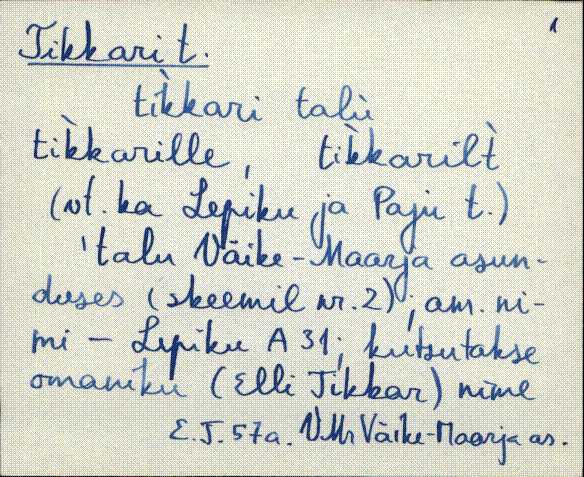 1
Tikkari t.
tìkkari talù
tìkkarille, tìkkarilt̀
(vt. ka Lepiku ja Paju t.)
'talu Väike-Maarja asun-
duses (skeemil nr. 2); am. ni-
mi - Lepiku A 31; kutsutakse
omaniku (Elli Tikkar) nime
E.J. 57a. V.Mr Väike-Maarja as.